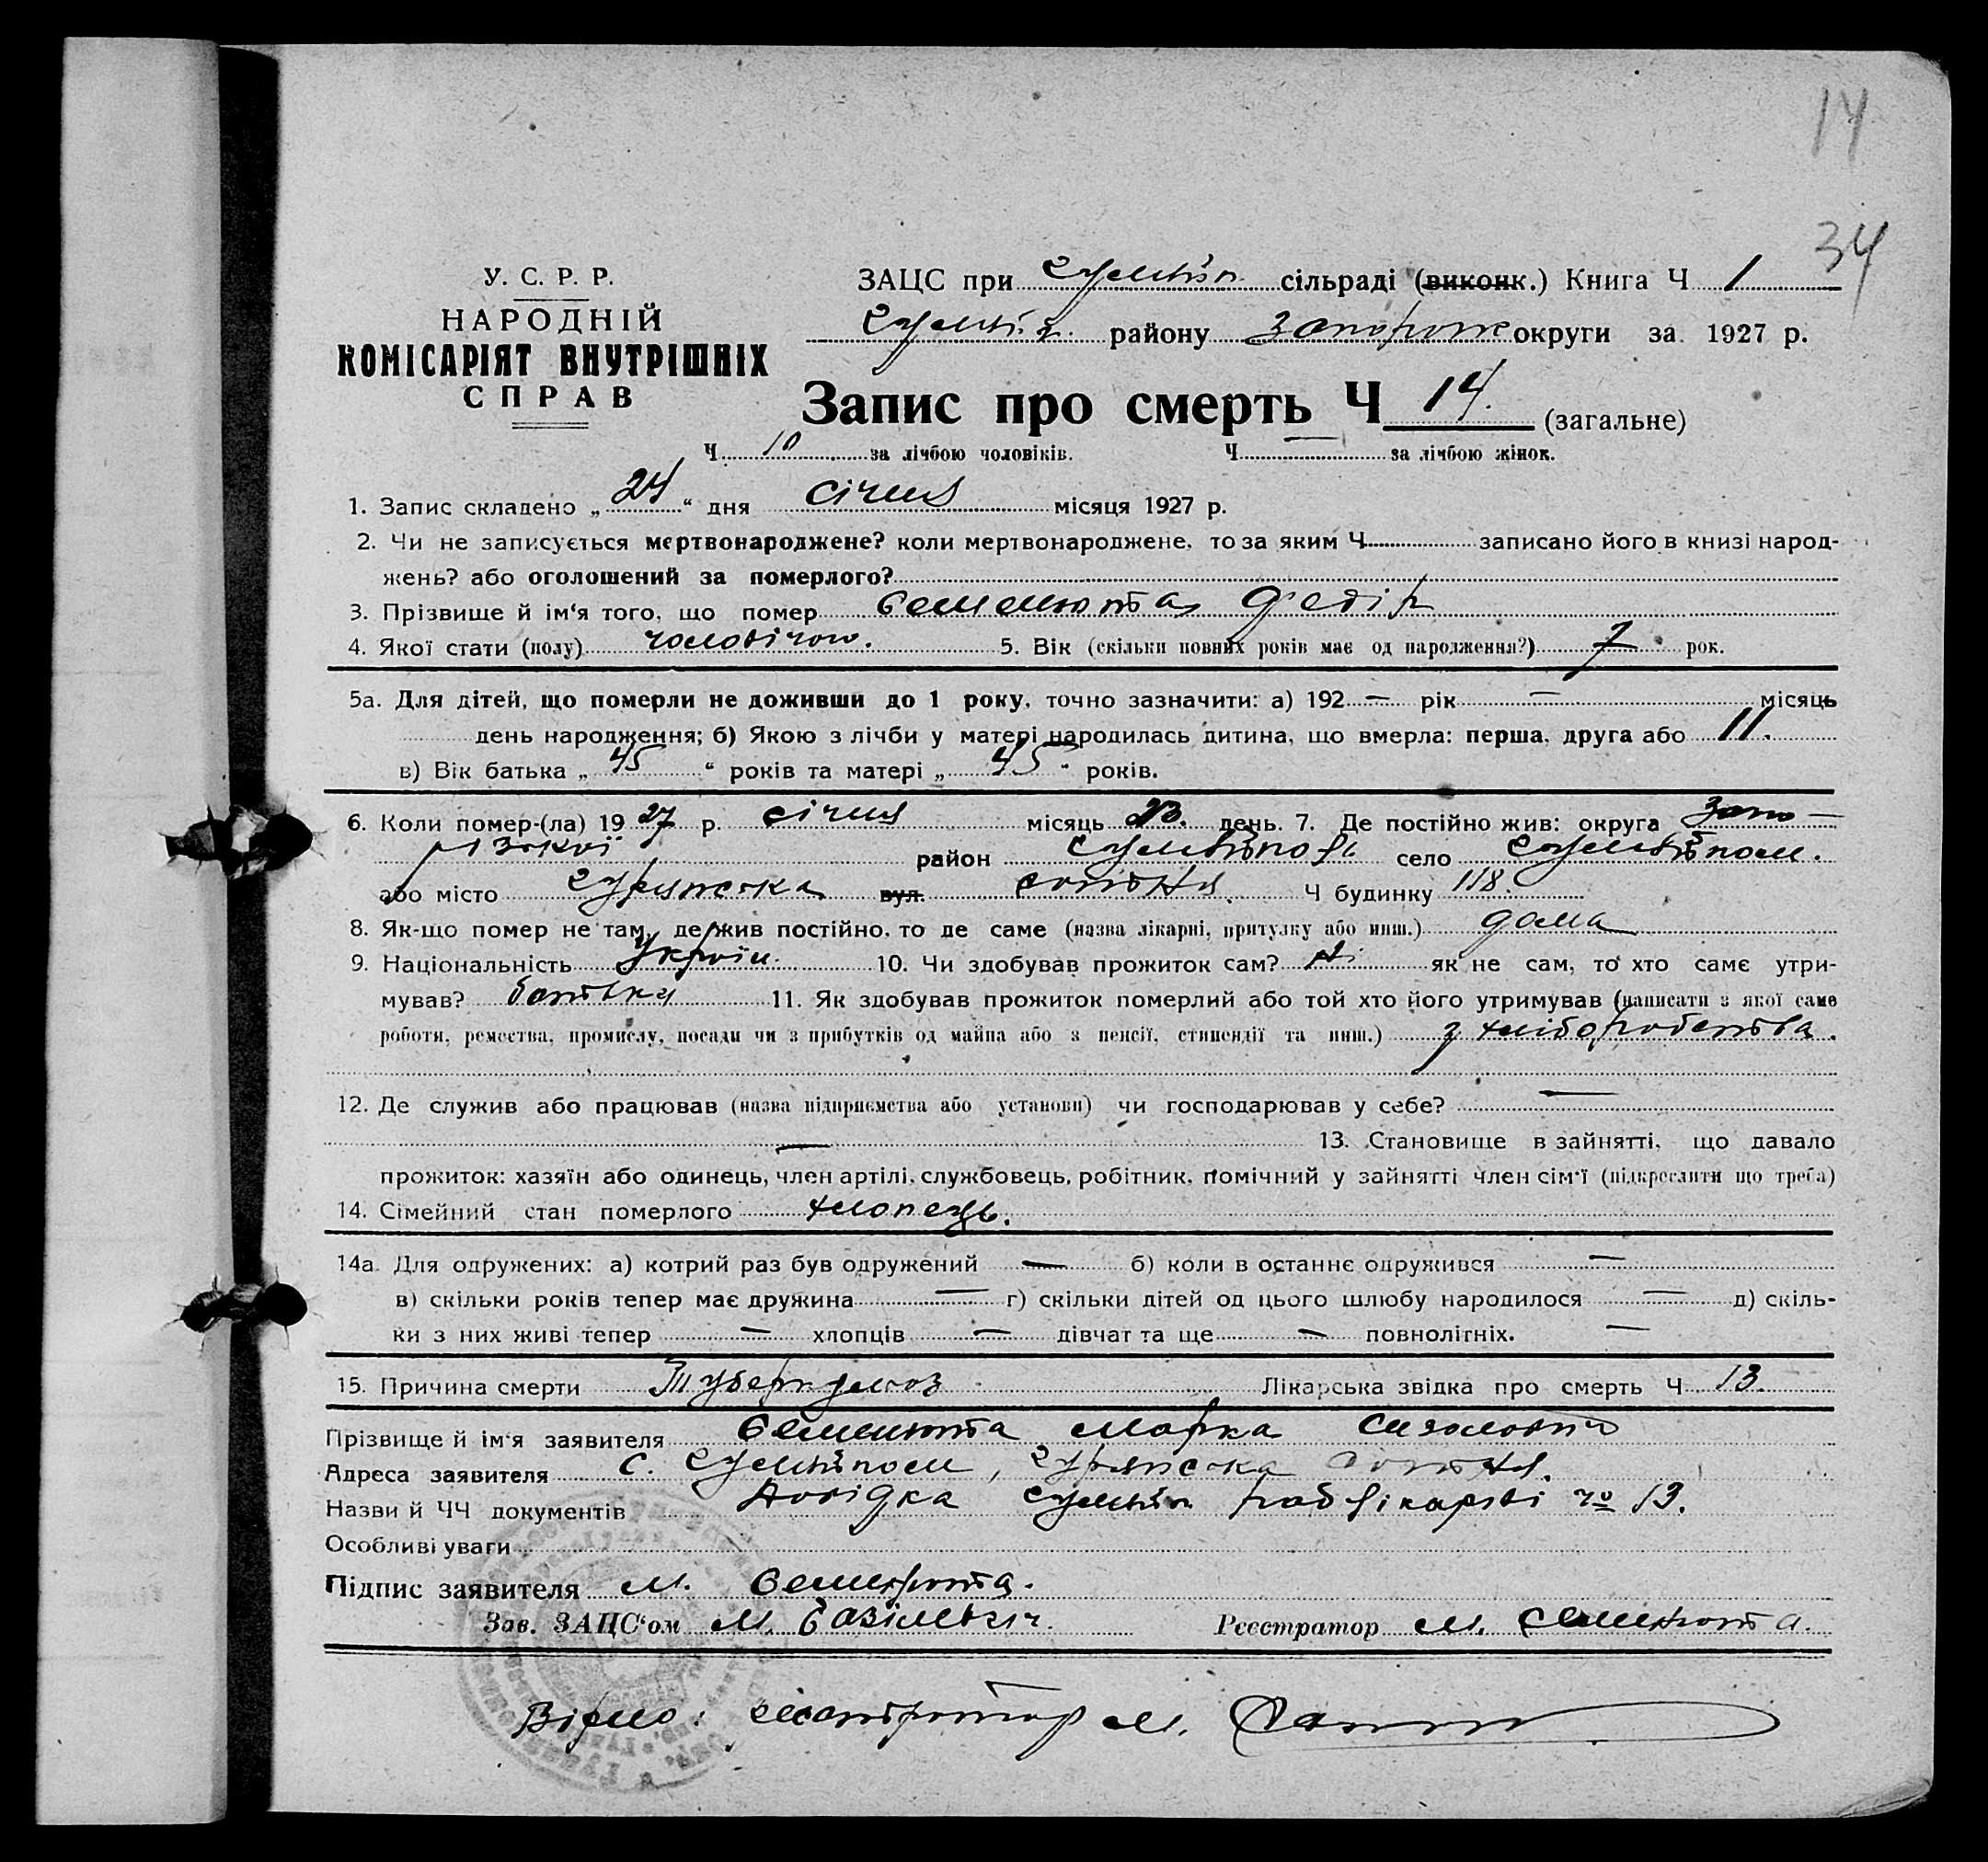 14
34
У. С. Р. Р.
НАРОДНІЙ
КОМІСАРІЯТ ВНУТРІШНІХ
СПРАВ
ЗАЦС при Гуляйп. сільраді (виконк.) Книга Ч 1
Гуляйп. району Запоріж округи за 1927 р.
Запис про смерть Ч 14. (загальне)
Ч 10 за лічбою чоловіків. Ч — за лічбою жінок.
1. Запис складено „ 24 “ дня січня місяця 1927 р.
2. Чи не записується мертвонароджене? коли мертвонароджене, то за яким Ч записано його в книзі народ-
жень? або оголошений за померлого?
3. Прізвище й ім‘я того, що помер Семенюта Федір
4. Якої стати (полу) чоловічого. 5. Вік (скільки повних років має од народження?) 7 рок.
5а. Для дітей, що померли не доживши до 1 року, точно зазначити: а) 192 — рік — місяць
день народження; б) Якою з лічби у матері народилась дитина, що вмерла: перша, друга або 11.
в) Вік батька „ 45 “ років та матері „ 45 “ років.
6. Коли помер-(ла) 19 27 р. січня місяць 23. день. 7. Де постійно жив: округа Запо-
різької район Гуляйпольс село Гуляйполе.
або місто вул. сотня Ч будинку 118.
8. Як-що помер не там, де жив постійно, то де саме (назва лікарні, притулку або инш.) дома
9. Національність Україн. 10. Чи здобував прожиток сам? ні як не сам, то хто саме утри-
мував? батько 11. Як здобував прожиток померлий або той хто його утримував (написати з якої саме
роботи, ремества, промислу, посади чи з прибутків од майна або з пенсії, стипендії та инш.) з хліборобства.
12. Де служив або працював (назва підприємства або установи) чи господарював у себе? —
— 13. Становище в зайнятті, що давало
прожиток: хазяїн або одинець, член артілі, службовець, робітник, помічний у зайнятті член сім‘ї (підкреслити що треба)
14. Сімейний стан померлого хлопець.
14а. Для одружених: а) котрий раз був одружений — б) коли в останнє одружився —
в) скільки років тепер має дружина — г) скільки дітей од цього шлюбу народилося — д) скіль-
ки з них живі тепер — хлопців — дівчат та ще — повнолітніх. —
15. Причина смерти Туберкульоз Лікарська звідка про смерть Ч 13.
Прізвище й ім‘я заявителя Семенюта Марка
Адреса заявителя с. Гуляйполе, сотня.
Назви й ЧЧ документів Довідка Гуляйп № 13.
Особливі уваги
Підпис заявителя М. Семенюта.
Зав. ЗАЦС‘ом М. Реєстратор М. Семенюта.
Вірно: М.